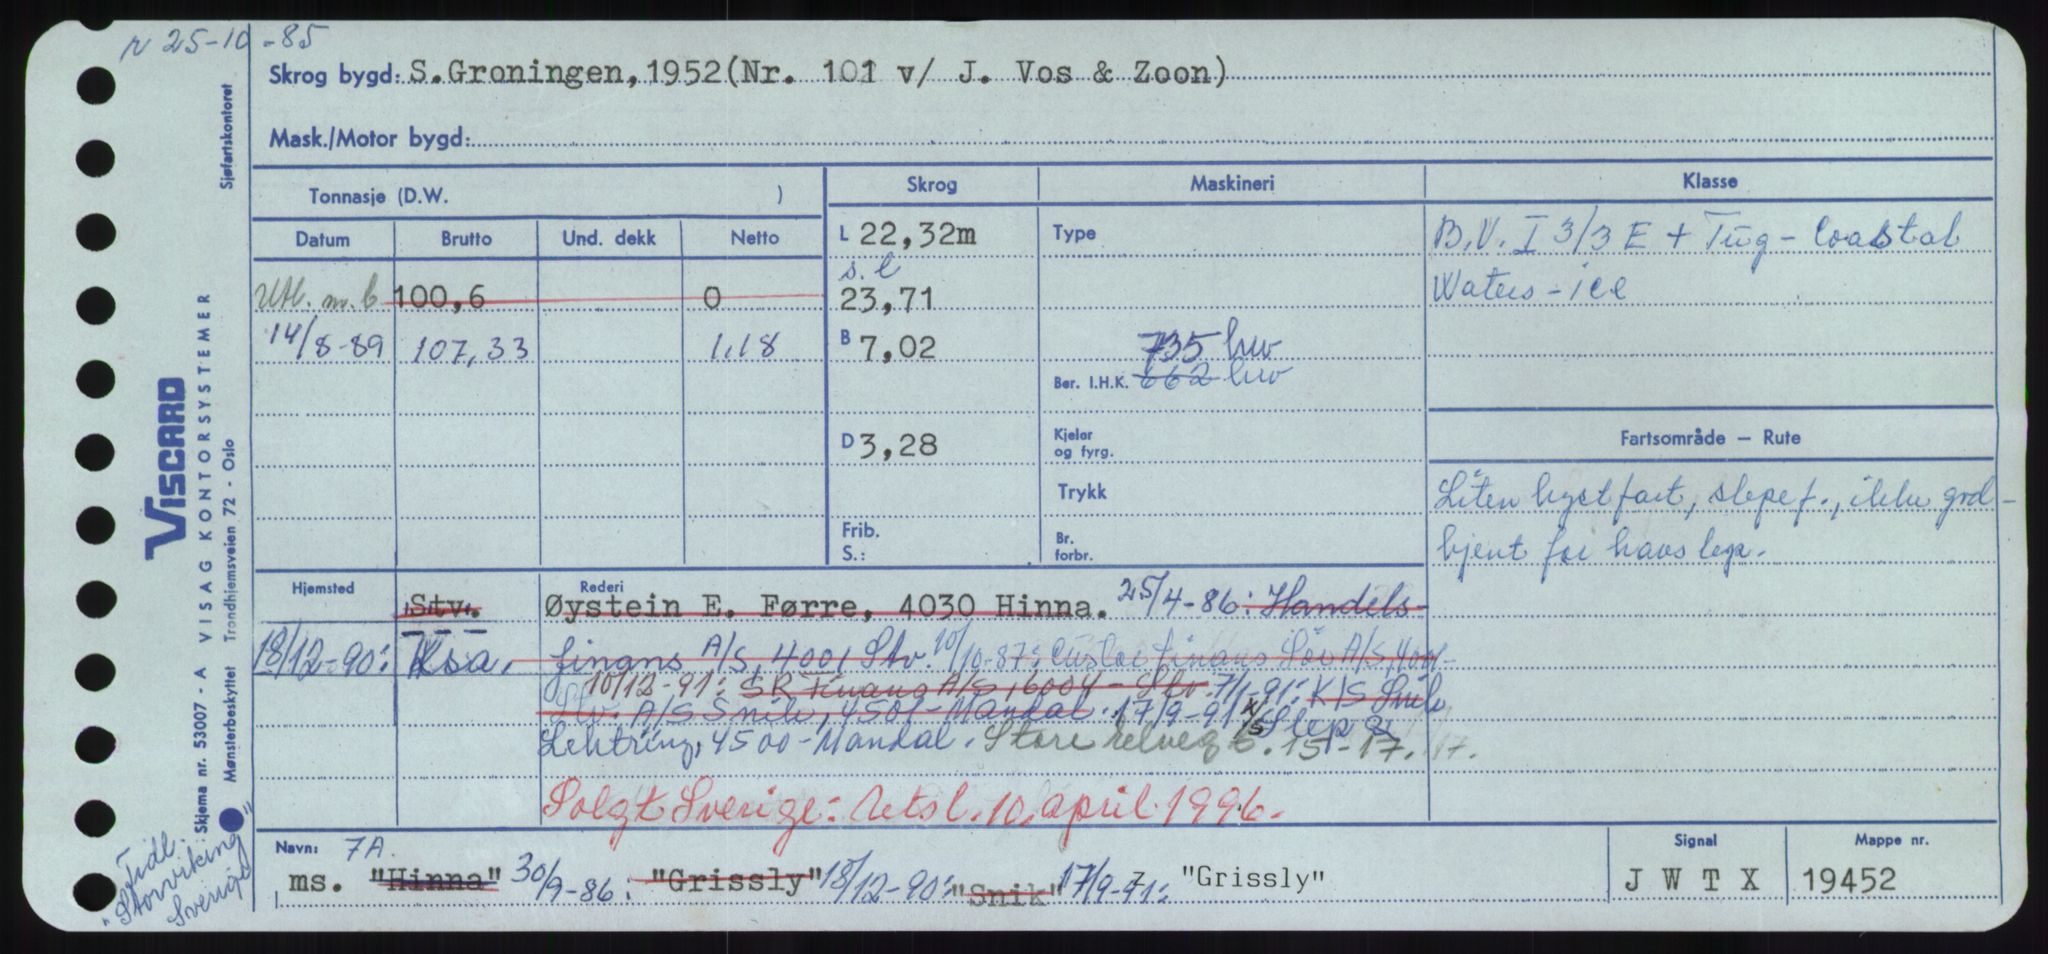 r 25-10-85
Skrog bygd: S.Groningen, 1952(Nr. 101 v/ J. Vos & Zoon)
Mask./Motor bygd:
Tonnasje (D.W. )
Skrog Maskineri Klasse
Datum Brutto Und. dekk Netto
L 22,32m Type B.V. I 3/3 E + Tug - Coastal
s.l Waters - ice
Utl. m.b 100,6 0 23,71
14/8-89 107,33 1,18 B 7,02 735 hw
Ber. I.H.K. 662 hw
D 3,28 Kjeler og fyrg. Fartsområde — Rute
Trykk Liten kystfart, slepef., ikke god-
Frib. S.: Br. forbr. kjent for havslep.
Hjemsted Rederi
"Stv." Øystein E. Førre, 4030 Hinna. 25/4-86: Handels-
18/12-90: Ksa. finans A/S, 4001 Stv. 10/10-87: Finans A/S, 4001-
10/12-91: SR Finans A/S, 6004 - Stv. 7/1-91: K/S Snik
Stv. A/S Snik, 4501-Mandal. 17/9-91 K/S Slep &
Lektring, 4500-Mandal. Store Elveg. 15-17.
Solgt Sverige: Utsl. 10. april 1996.
Navn: 7A Signal Mappe nr.
ms. "Hinna" 30/9-86: "Grissly" 18/12-90: "Snik" 17/9-91: "Grissly" J W T X 19452
Tidl.
"Storviking"
Sverige
Sjøfartskontoret
VISCARD
VISAG KONTORSYSTEMER
Trondhjemsveien 72 - Oslo
Skjema nr. 53007 - A
Mønsterbeskyttet